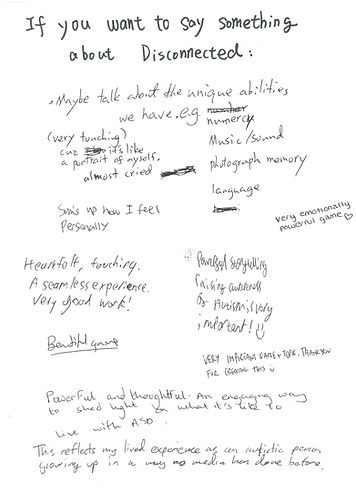 If you want to say something
about Disconnected:
• Maybe talk about the unique abilities
we have. e.g. numercy
(very touching)
cuz it's like
a portrait of myself.
almost cried
Music/sound
photograph memory
language
Sums up how I feel
Personally
very emotionally
powerful game
Heartfelt, touching.
A seamless experience.
Very good work!
Powerful storytelling
raising awareness
of Autism is very
important!
Beautiful game
VERY IMPORTANT GAME + TOPIC. THANK YOU
FOR CREATING THIS
Powerful and thoughtful. An engaging way
to shed light on what it's like to
live with ASD.
This reflects my lived experience as an autistic person
growing up in a way no media has done before.